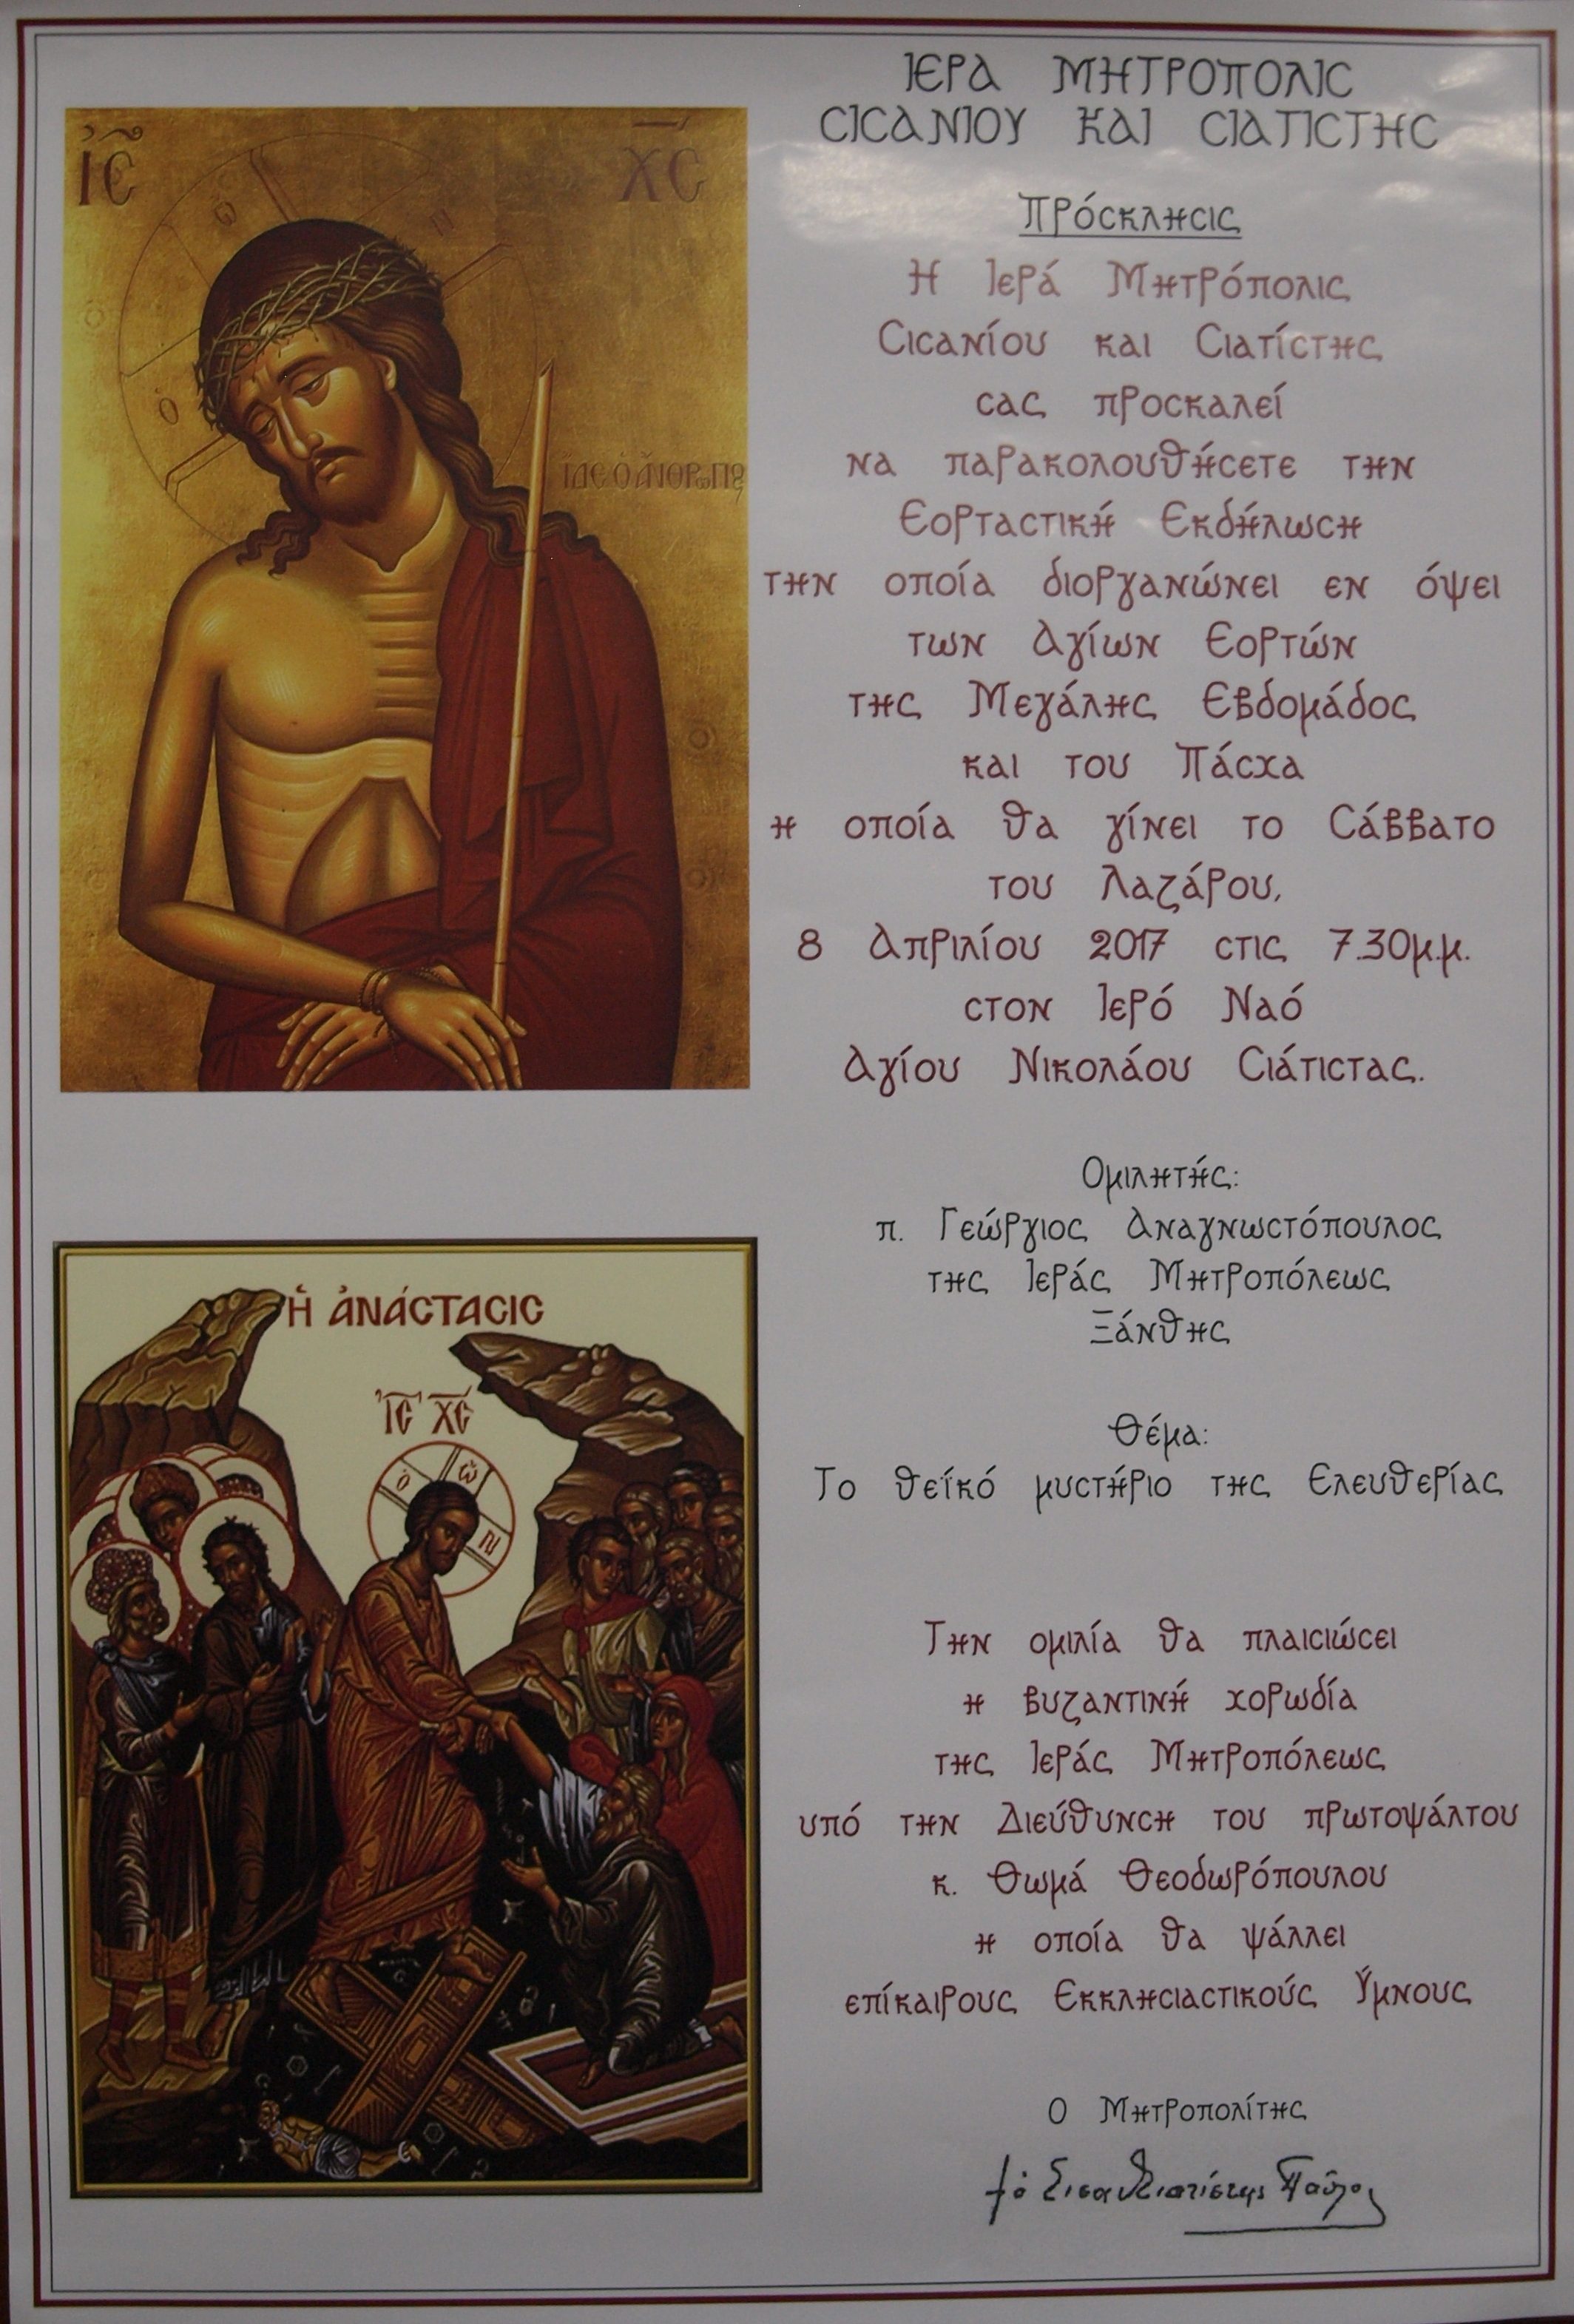 ΙΕΡΑ ΜΗΤΡΟΠΟΛΙΣ
ΣΙΣΑΝΙΟΥ ΚΑΙ ΣΙΑΤΙΣΤΗΣ
Πρόσκλησις
Η Ιερά Μητρόπολις
Σισανίου και Σιατίστης
σας προσκαλεί
να παρακολουθήσετε την
Εορταστική Εκδήλωση
την οποία διοργανώνει εν όψει
των Αγίων Εορτών
της Μεγάλης Εβδομάδος
και του Πάσχα
η οποία θα γίνει το Σάββατο
του Λαζάρου,
8 Απριλίου 2017 στις 7.30μ.μ.
στον Ιερό Ναό
Αγίου Νικολάου Σιάτιστας.
Ομιλητής:
π. Γεώργιος Αναγνωστόπουλος
της Ιεράς Μητροπόλεως
Ξάνθης
Θέμα:
Το θεϊκό μυστήριο της Ελευθερίας
Την ομιλία θα πλαισιώσει
η βυζαντινή χορωδία
της Ιεράς Μητροπόλεως
υπό την Διεύθυνση του πρωτοψάλτου
κ. Θωμά Θεοδωρόπουλου
η οποία θα ψάλλει
επίκαιρους Εκκλησιαστικούς Ύμνους
Ο Μητροπολίτης
† ὁ Σισανίου & Σιατίστης Παῦλος
ἸC ΧC
Ο Ω Ν
ἼΔΕ Ὁ ἌΝΘΡωΠΟς
Ἡ ἈΝΆCΤΑCΙC
ἸC ΧC
Ὁ Ὢ Ν